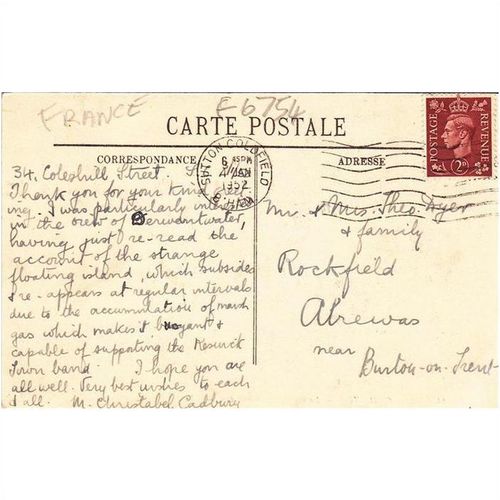 FRANCE
E6754
CARTE POSTALE
CORRESPONDANCE
ADRESSE
SUTTON COLDFIELD
6 45PM
4 JAN
1952
POSTAGE REVENUE
2D
34, Coleshill Street, S
Thank you for your kind
ing. I was particularly inter
in the view of Derwentwater,
having just re-read the
account of the strange
floating island, which subsides
& re-appears at regular intervals
due to the accumulation of marsh
gas which makes it buoyant &
capable of supporting the Keswick
Town band. I hope you are
all well. Very best wishes to each
& all. M. Christabel Cadbury
Mr. & Mrs. Theo. Dyer
& family
Rockfield
Alrewas
near
Burton-on-Trent